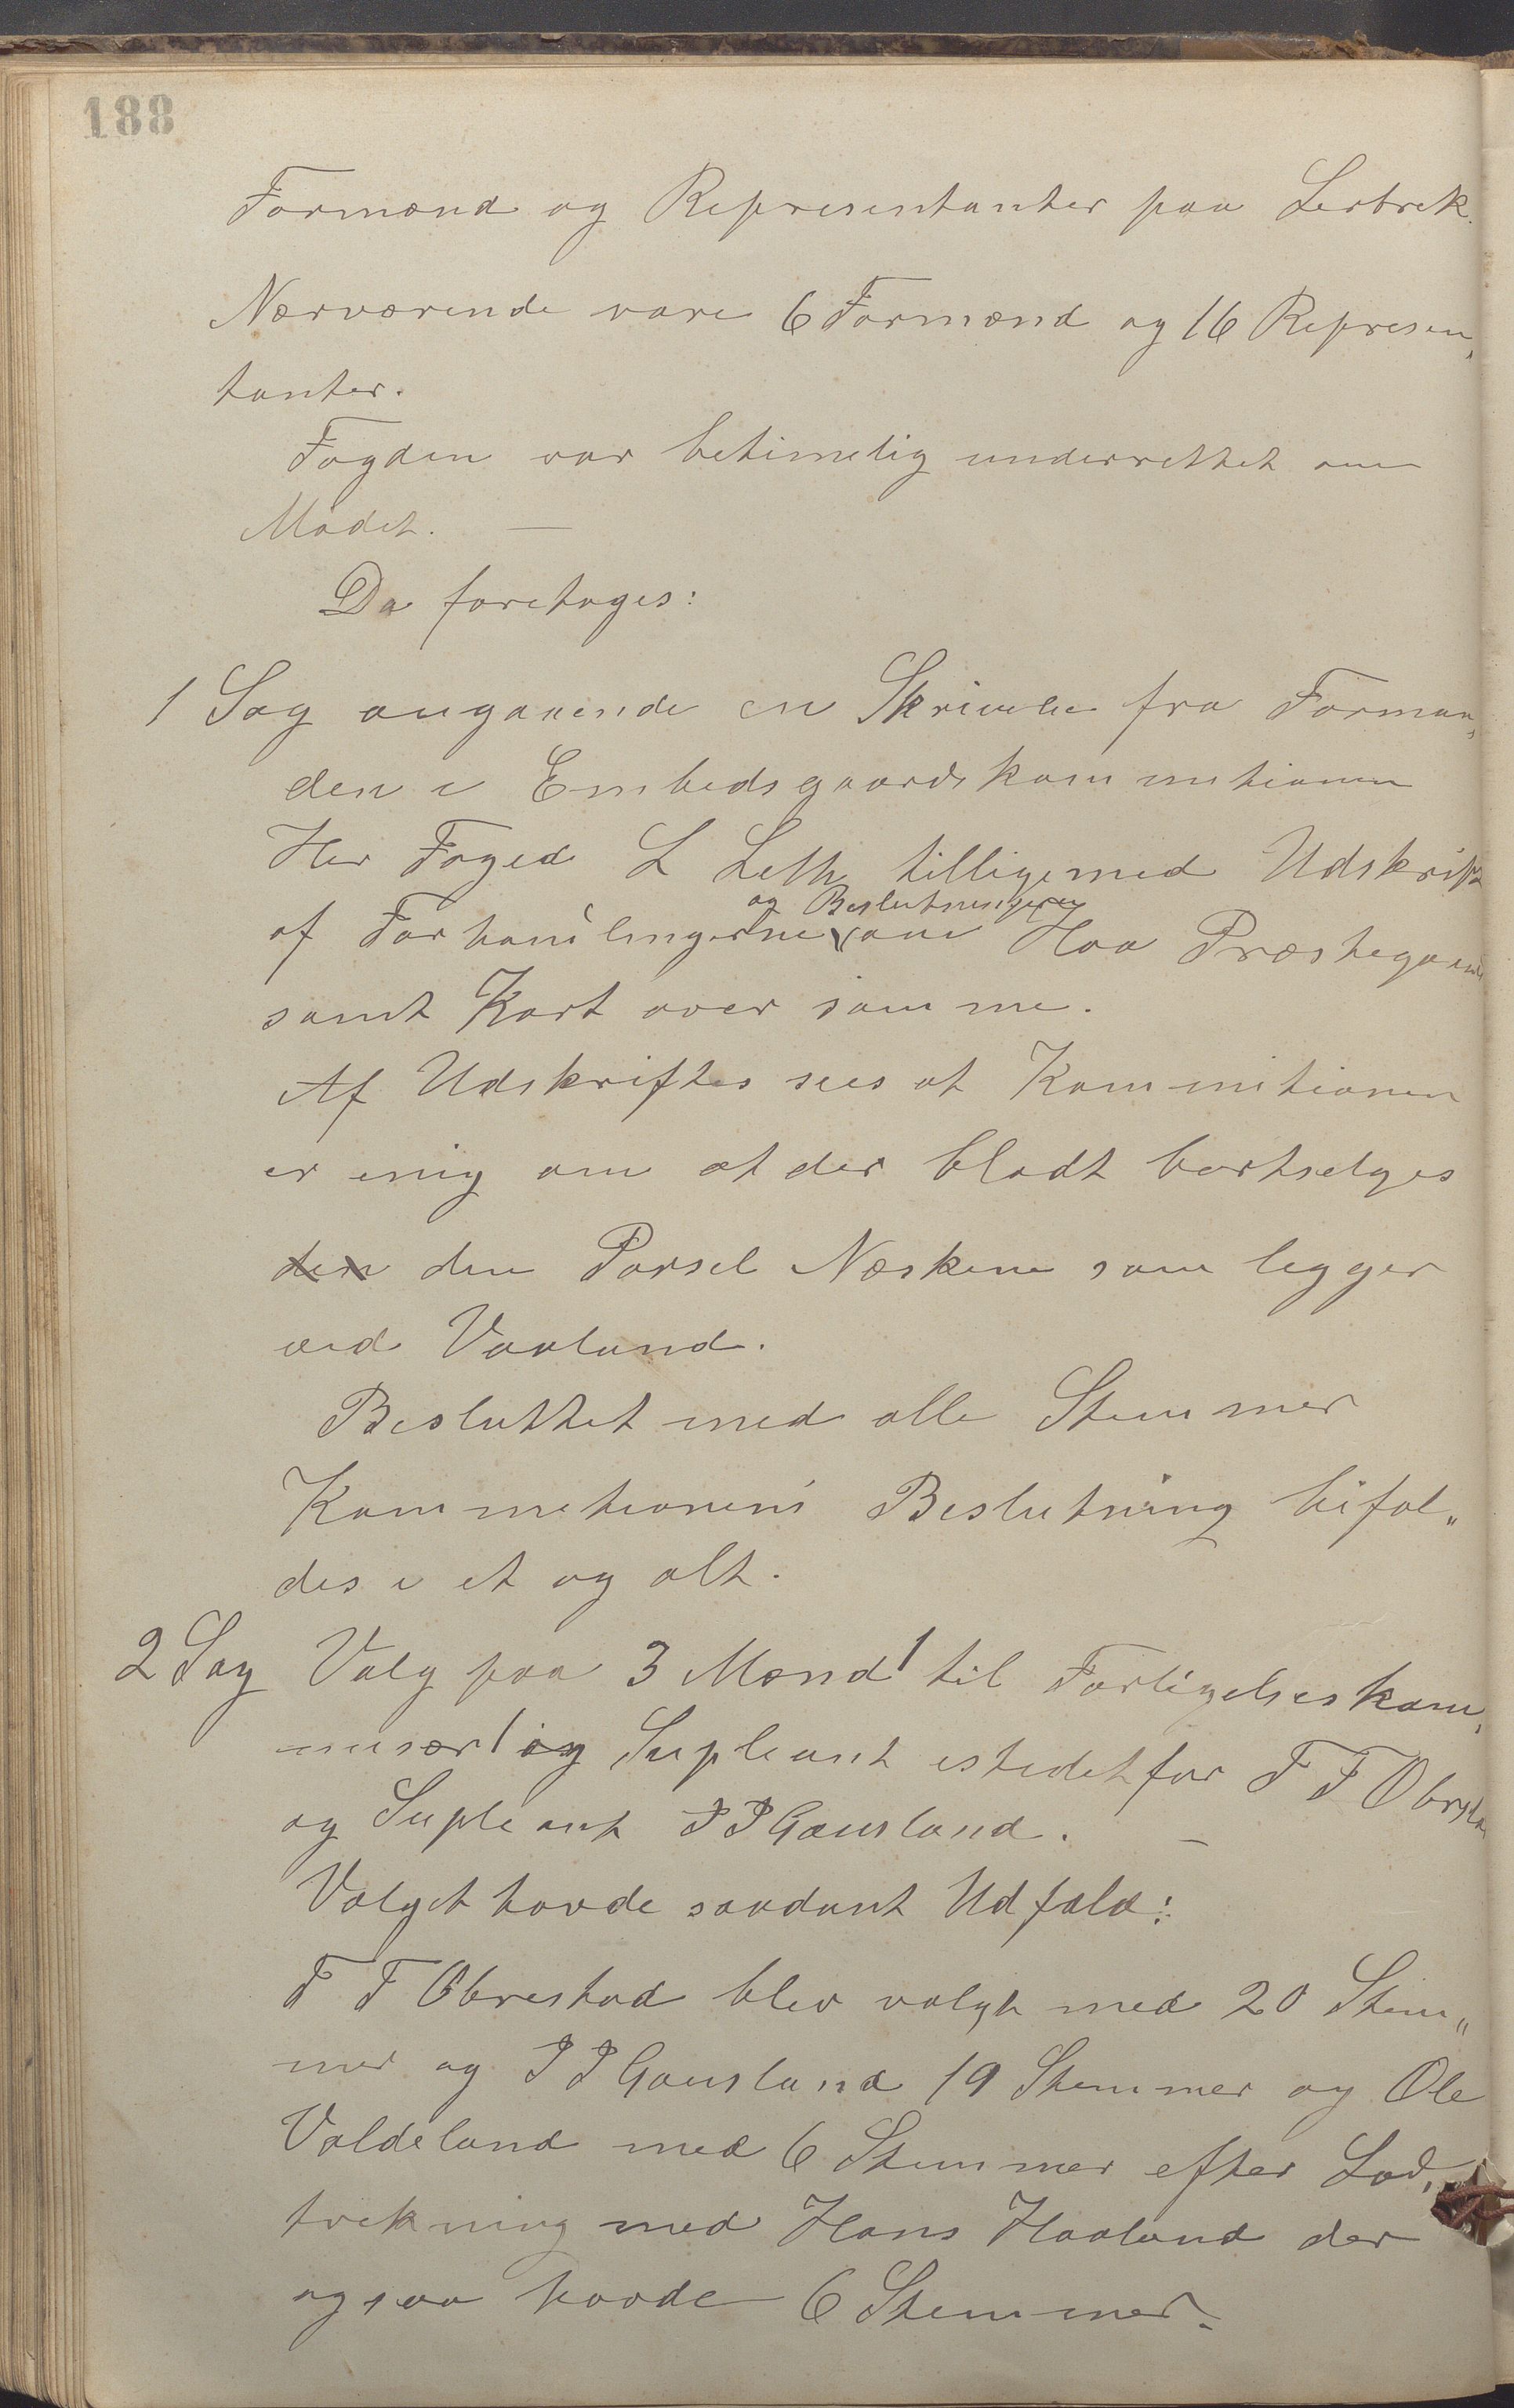 188
Formænd og Representanter paa Lerbrek.
Nærværende vare 6 Formænd og 16 Represen,
tanter.
Fogden var betimelig underrettet om
Mødet. —
Da foretages:
1 Sag angaaende en Skrivelse fra Forman,
den i Embedsgaardskommitionen
Her Foged L Leth tilligemed Udskrift
og Beslutningeren
af Forhandlingerne om Haa Præstegaard
samt Kart over samme.
Af Udskriftes sees at Kommitionen
er enig om at der blodt bortselges
den den Parsel Næskene som legger
ved Vaaland.
Besluttet med alle Stemmer
Kommetionens Beslutning bifol„
des i et og alt.
2 Sag Valg paa 3 Mænd 1 til Forligelseskom,
misær 1 og Supleant istedetfor F F Obrestad
og Supleant J J Gausland. —
Valget havde saadant Udfald:
F F Obrestad blev valgt med 20 Stem„
mer og J J Gausland 19 Stemmer og Ole
Valdeland med 6 Stemmer efter Lod,
trekning med Hans Haaland der
ogsaa havde 6 Stemmer.